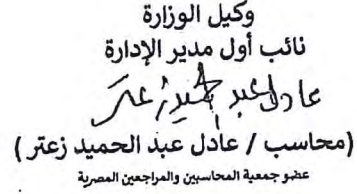 وكيل الوزارة
نائب أول مدير الإدارة
عادل عبد الحميد زعتر
(محاسب / عادل عبد الحميد زعتر )
عضو جمعية المحاسبين والمراجعين المصرية